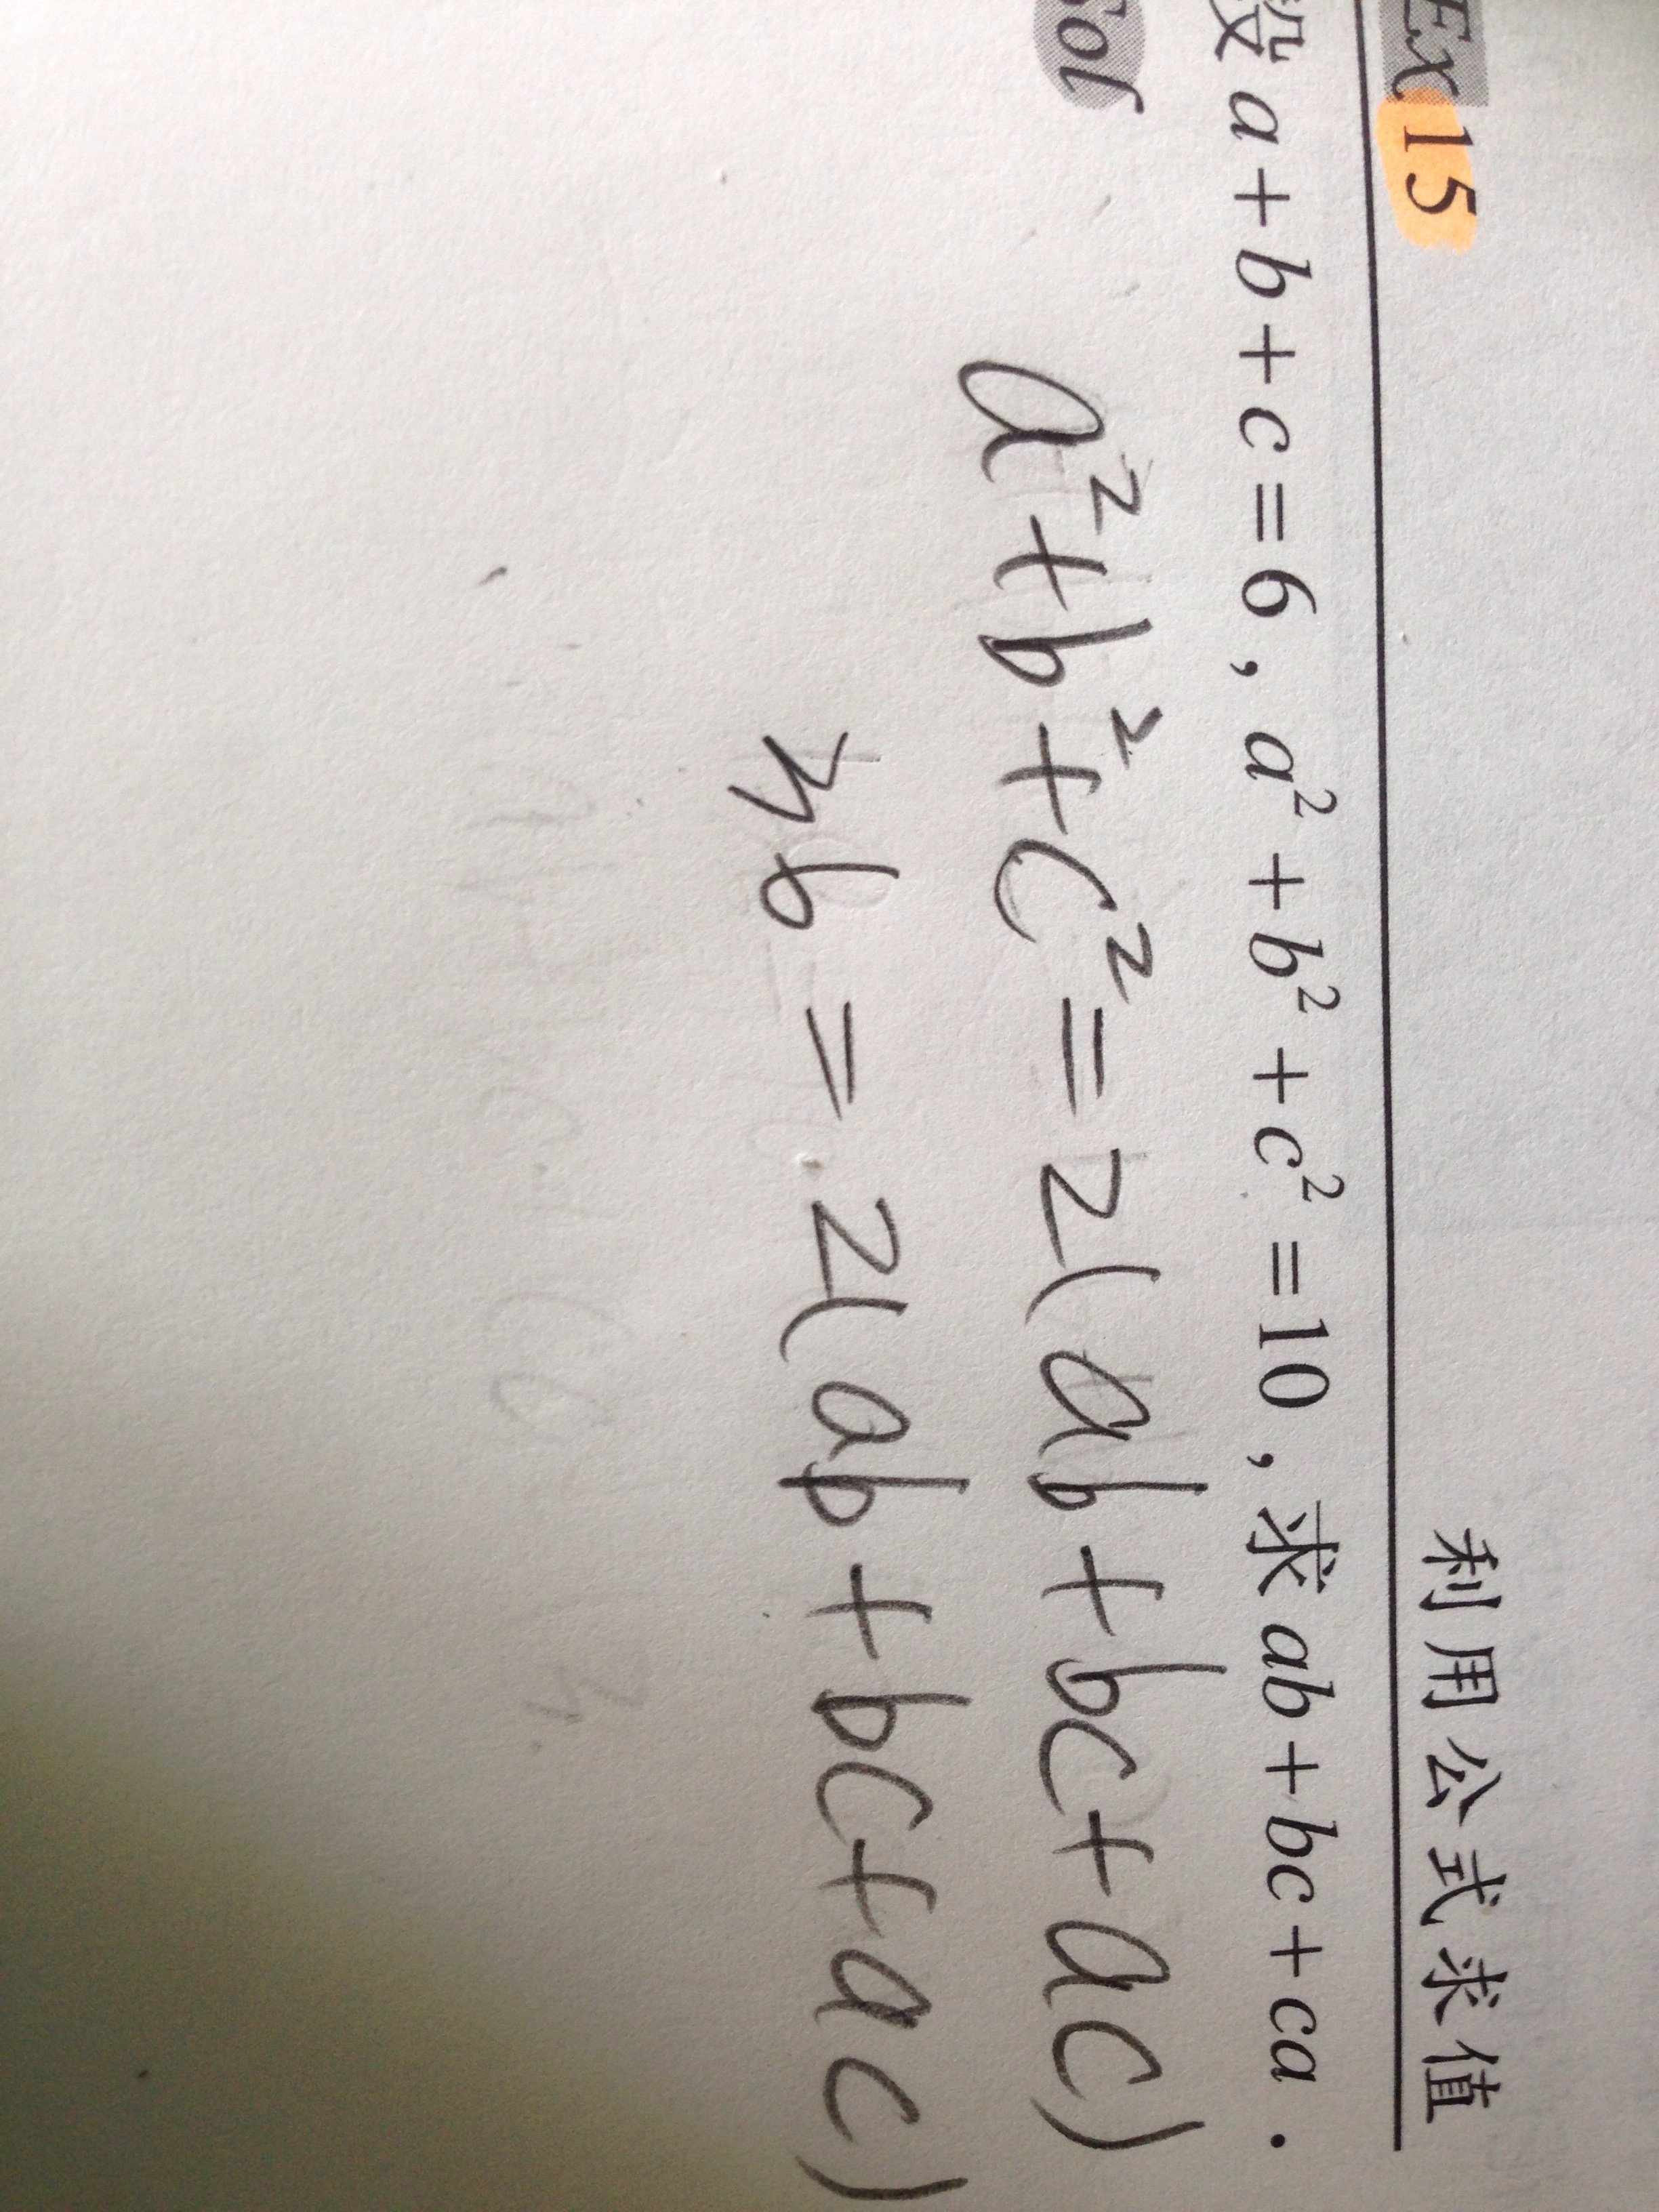 Ex 15 利用公式求值
設 a + b + c = 6 , a² + b² + c² = 10 , 求 ab + bc + ca .
Sol
a²+b²+c²=2(ab+bc+ac)
=2(ab+bc+ac)